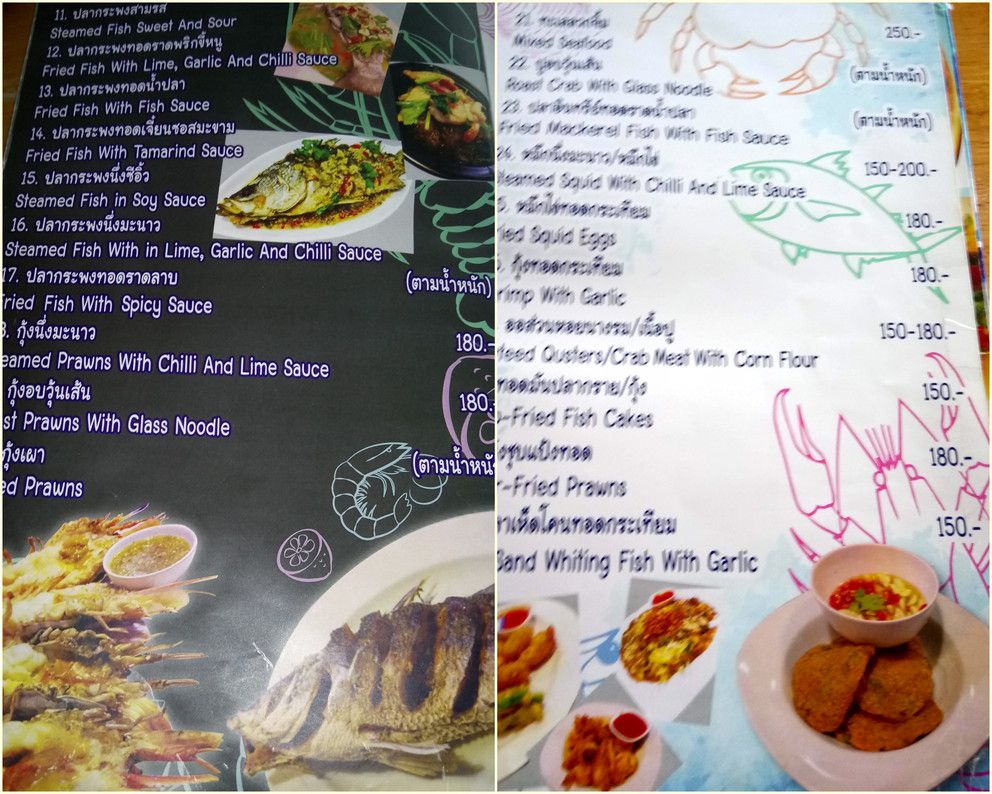 11. ปลากระพงสามรส
Steamed Fish Sweet And Sour
12. ปลากระพงทอดราดพริกขี้หนู
Fried Fish With Lime, Garlic And Chilli Sauce
13. ปลากระพงทอดน้ำปลา
Fried Fish With Fish Sauce
14. ปลากระพงทอดเจี๋ยนซอสมะขาม
Fried Fish With Tamarind Sauce
15. ปลากระพงนึ่งซีอิ้ว
Steamed Fish in Soy Sauce
16. ปลากระพงนึ่งมะนาว
Steamed Fish With in Lime, Garlic And Chilli Sauce
17. ปลากระพงทอดราดลาบ (ตามน้ำหนัก)
ried Fish With Spicy Sauce
8. กุ้งนึ่งมะนาว 180.-
eamed Prawns With Chilli And Lime Sauce
กุ้งอบวุ้นเส้น 180.
st Prawns With Glass Noodle
กุ้งเผา (ตามน้ำหนั
ed Prawns
21. 250.-
Mixed Seafood
22. ปูอบวุ้นเส้น (ตามน้ำหนัก)
Roast Crab With Glass Noodle
23. ปลาอินทรีย์ทอดราดน้ำปลา (ตามน้ำหนัก)
Fried Mackerel Fish With Fish Sauce
24. หมึกนึ่งมะนาว/หมึกไข่ 150-200.-
teamed Squid With Chilli And Lime Sauce
5. หมึกไข่ทอดกระเทียม 180.-
ied Squid Eggs
. กุ้งทอดกระเทียม 180.-
rimp With Garlic
ออส่วนหอยนางรม/เนื้อปู 150-180.-
feed Ousters/Crab Meat With Corn Flour
ทอดมันปลากราย/กุ้ง 150.-
-Fried Fish Cakes
งชุบแป้งทอด 180.-
-Fried Prawns
าเห็ดโคนทอดกระเทียม 150.-
Sand Whiting Fish With Garlic